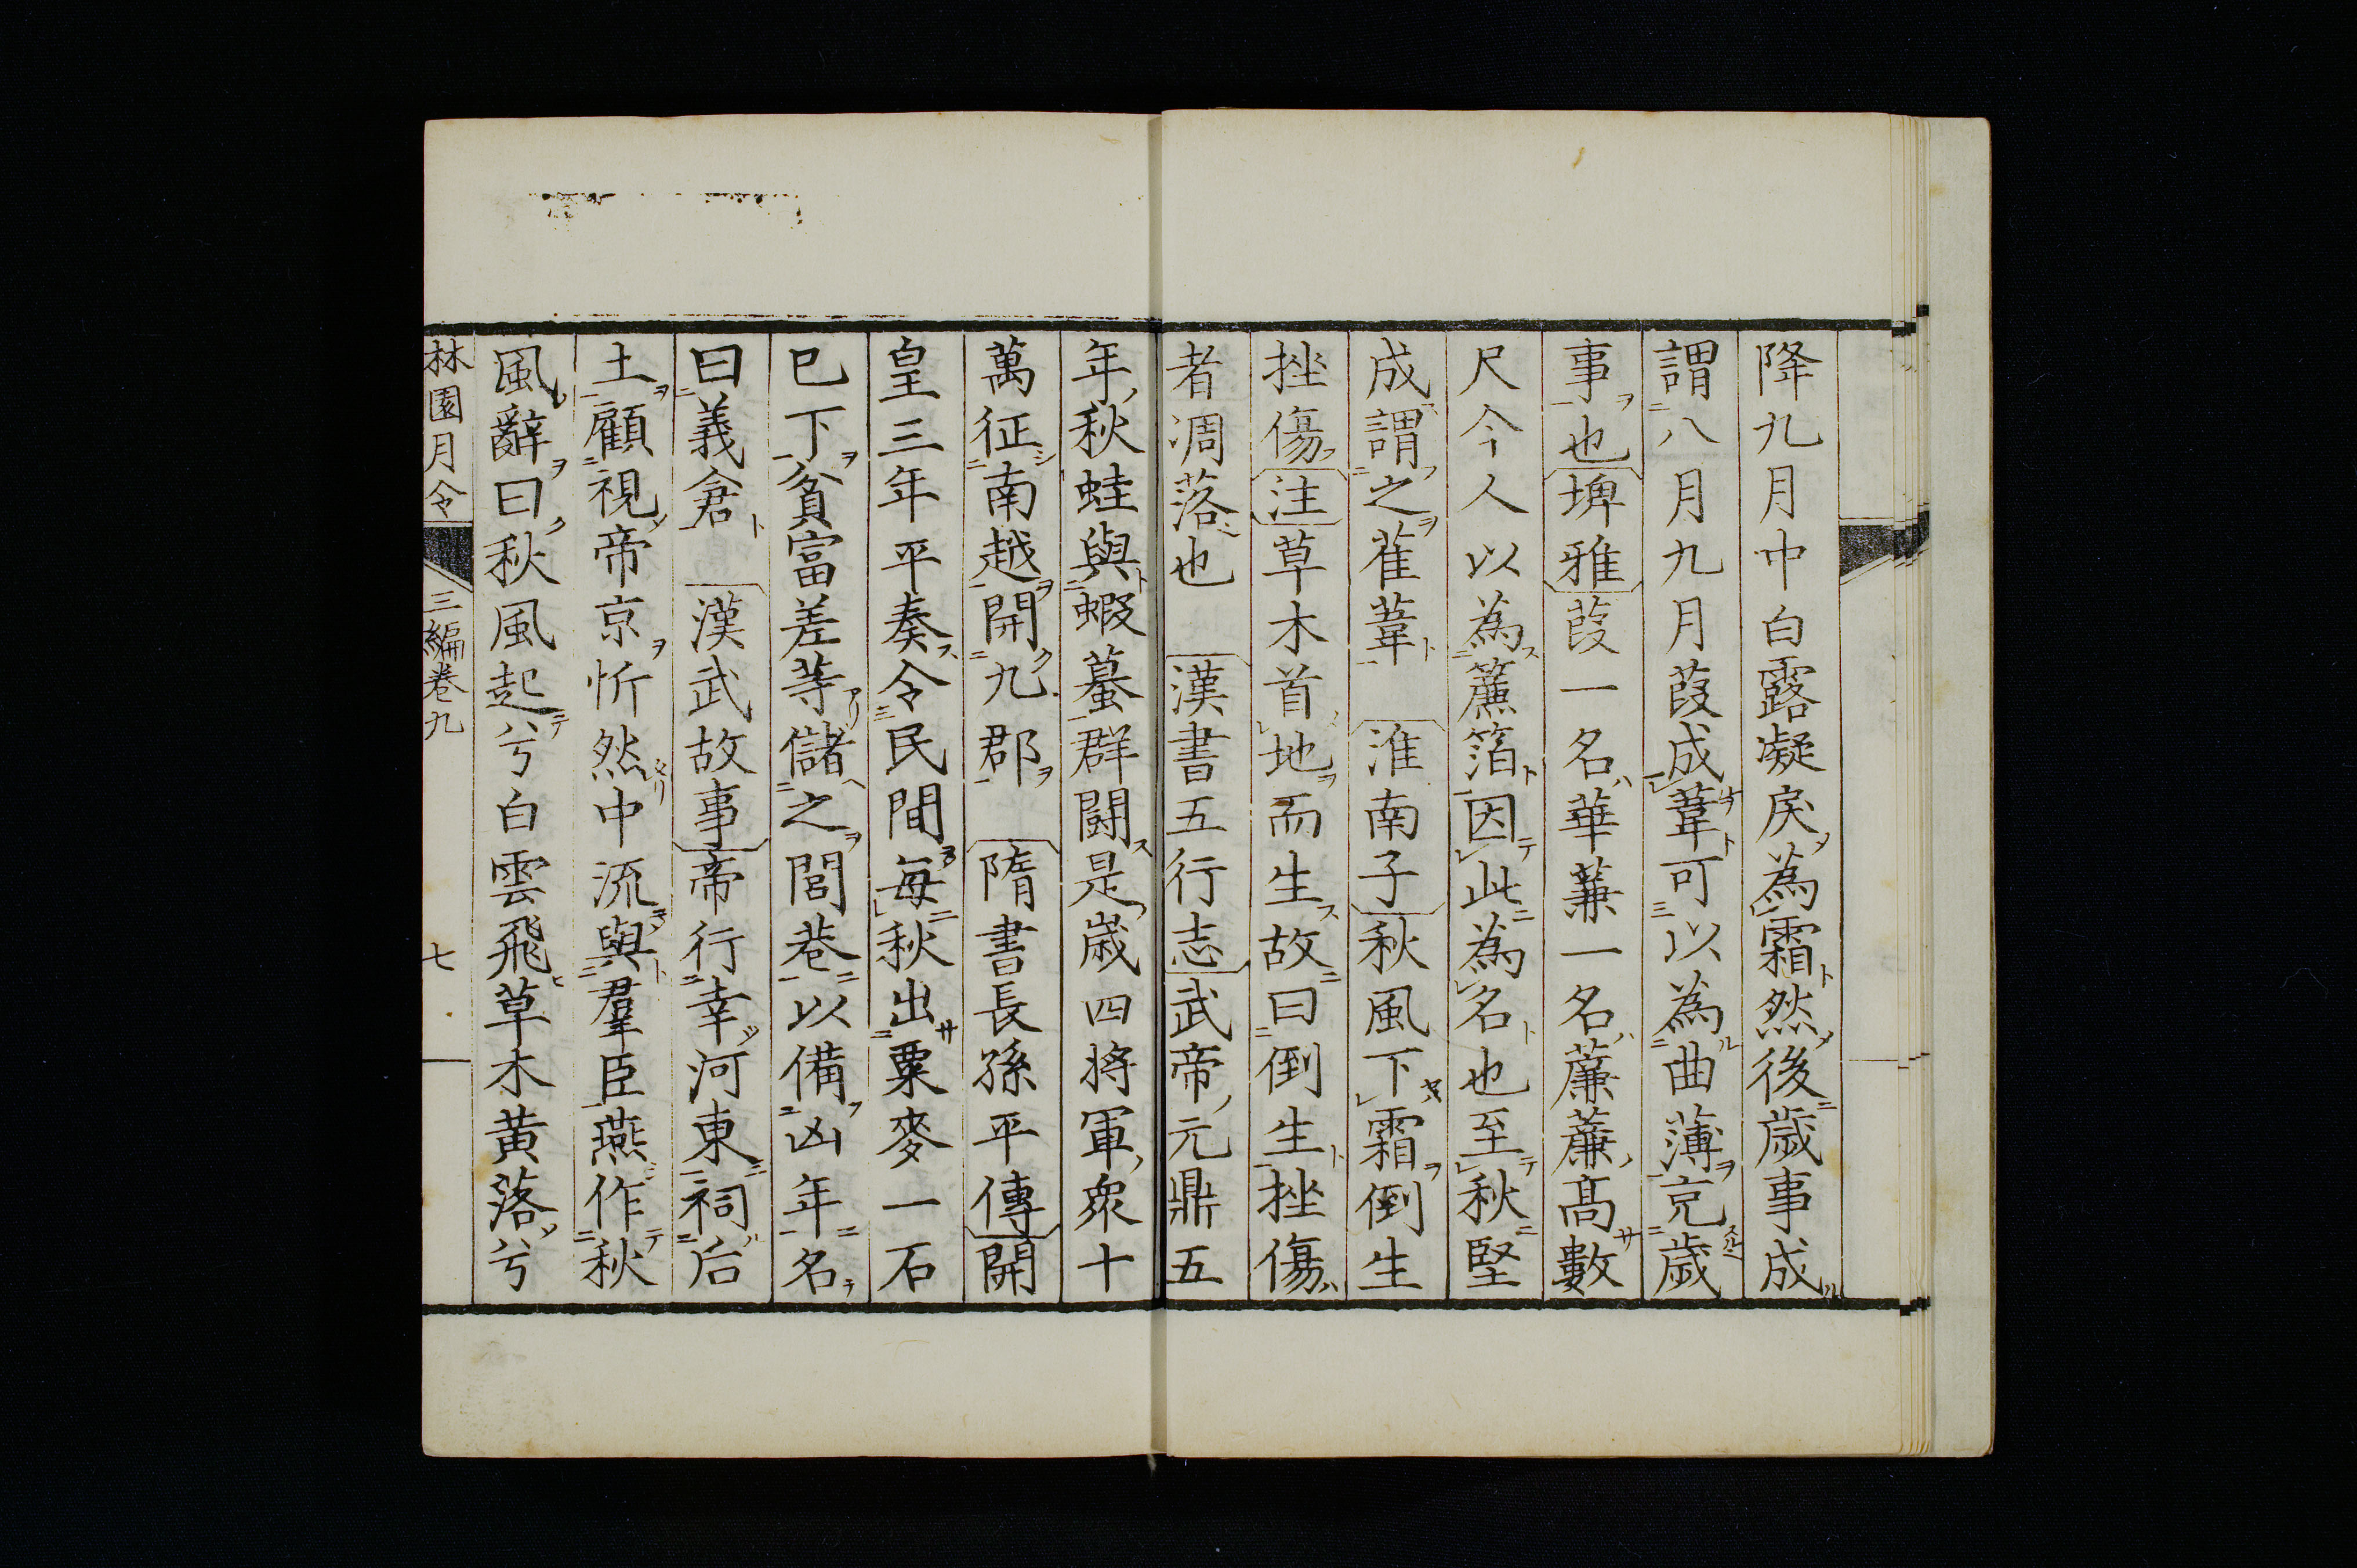 降九月中白露凝戻為霜然後歳事成
謂八月九月葭成葦可以為曲薄亮歳
事也埤雅葭一名華蒹一名薕薕高數
尺今人以為簾箔因此為名也至秋堅
成謂之萑葦 淮南子秋風下霜倒生
挫傷注草木首地而生故曰倒生挫傷
者凋落也 漢書五行志武帝元鼎五
年秋蛙與蝦蟇群闘是歳四将軍衆十
萬征南越開九郡 隋書長孫平傳開
皇三年平奏令民間毎秋出粟麥一石
已下貧富差等儲之閭巷以備凶年名
曰義倉 漢武故事帝行幸河東祠后
土顧視帝京忻然中流與羣臣燕作秋
風辭曰秋風起兮白雲飛草木黄落兮
林園月令 三編巻九 七